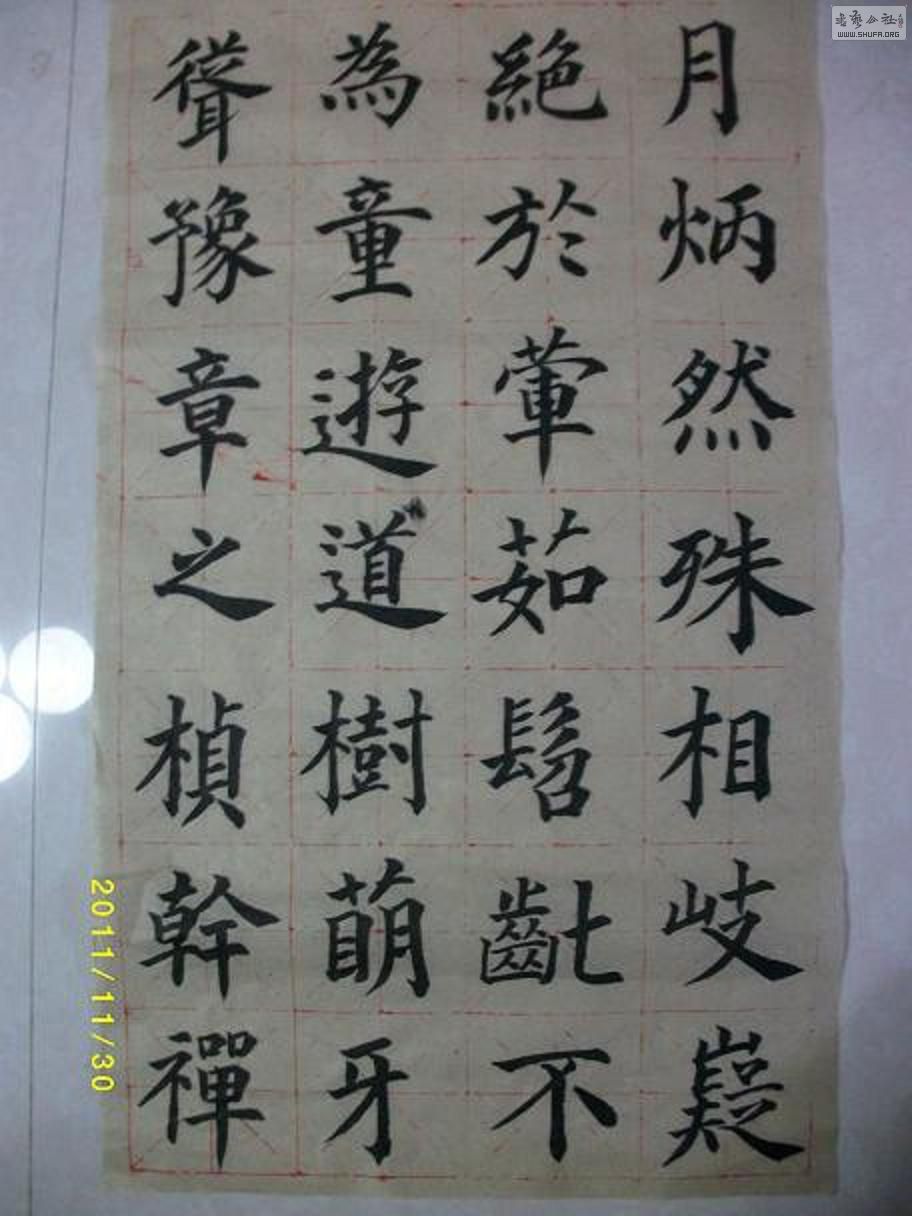 月炳然殊相岐嶷
絶於葷茹髫齔不
為童遊道樹萌牙
聳豫章之楨幹禪
書藝公社
WWW.SHUFA.ORG
2011/11/30